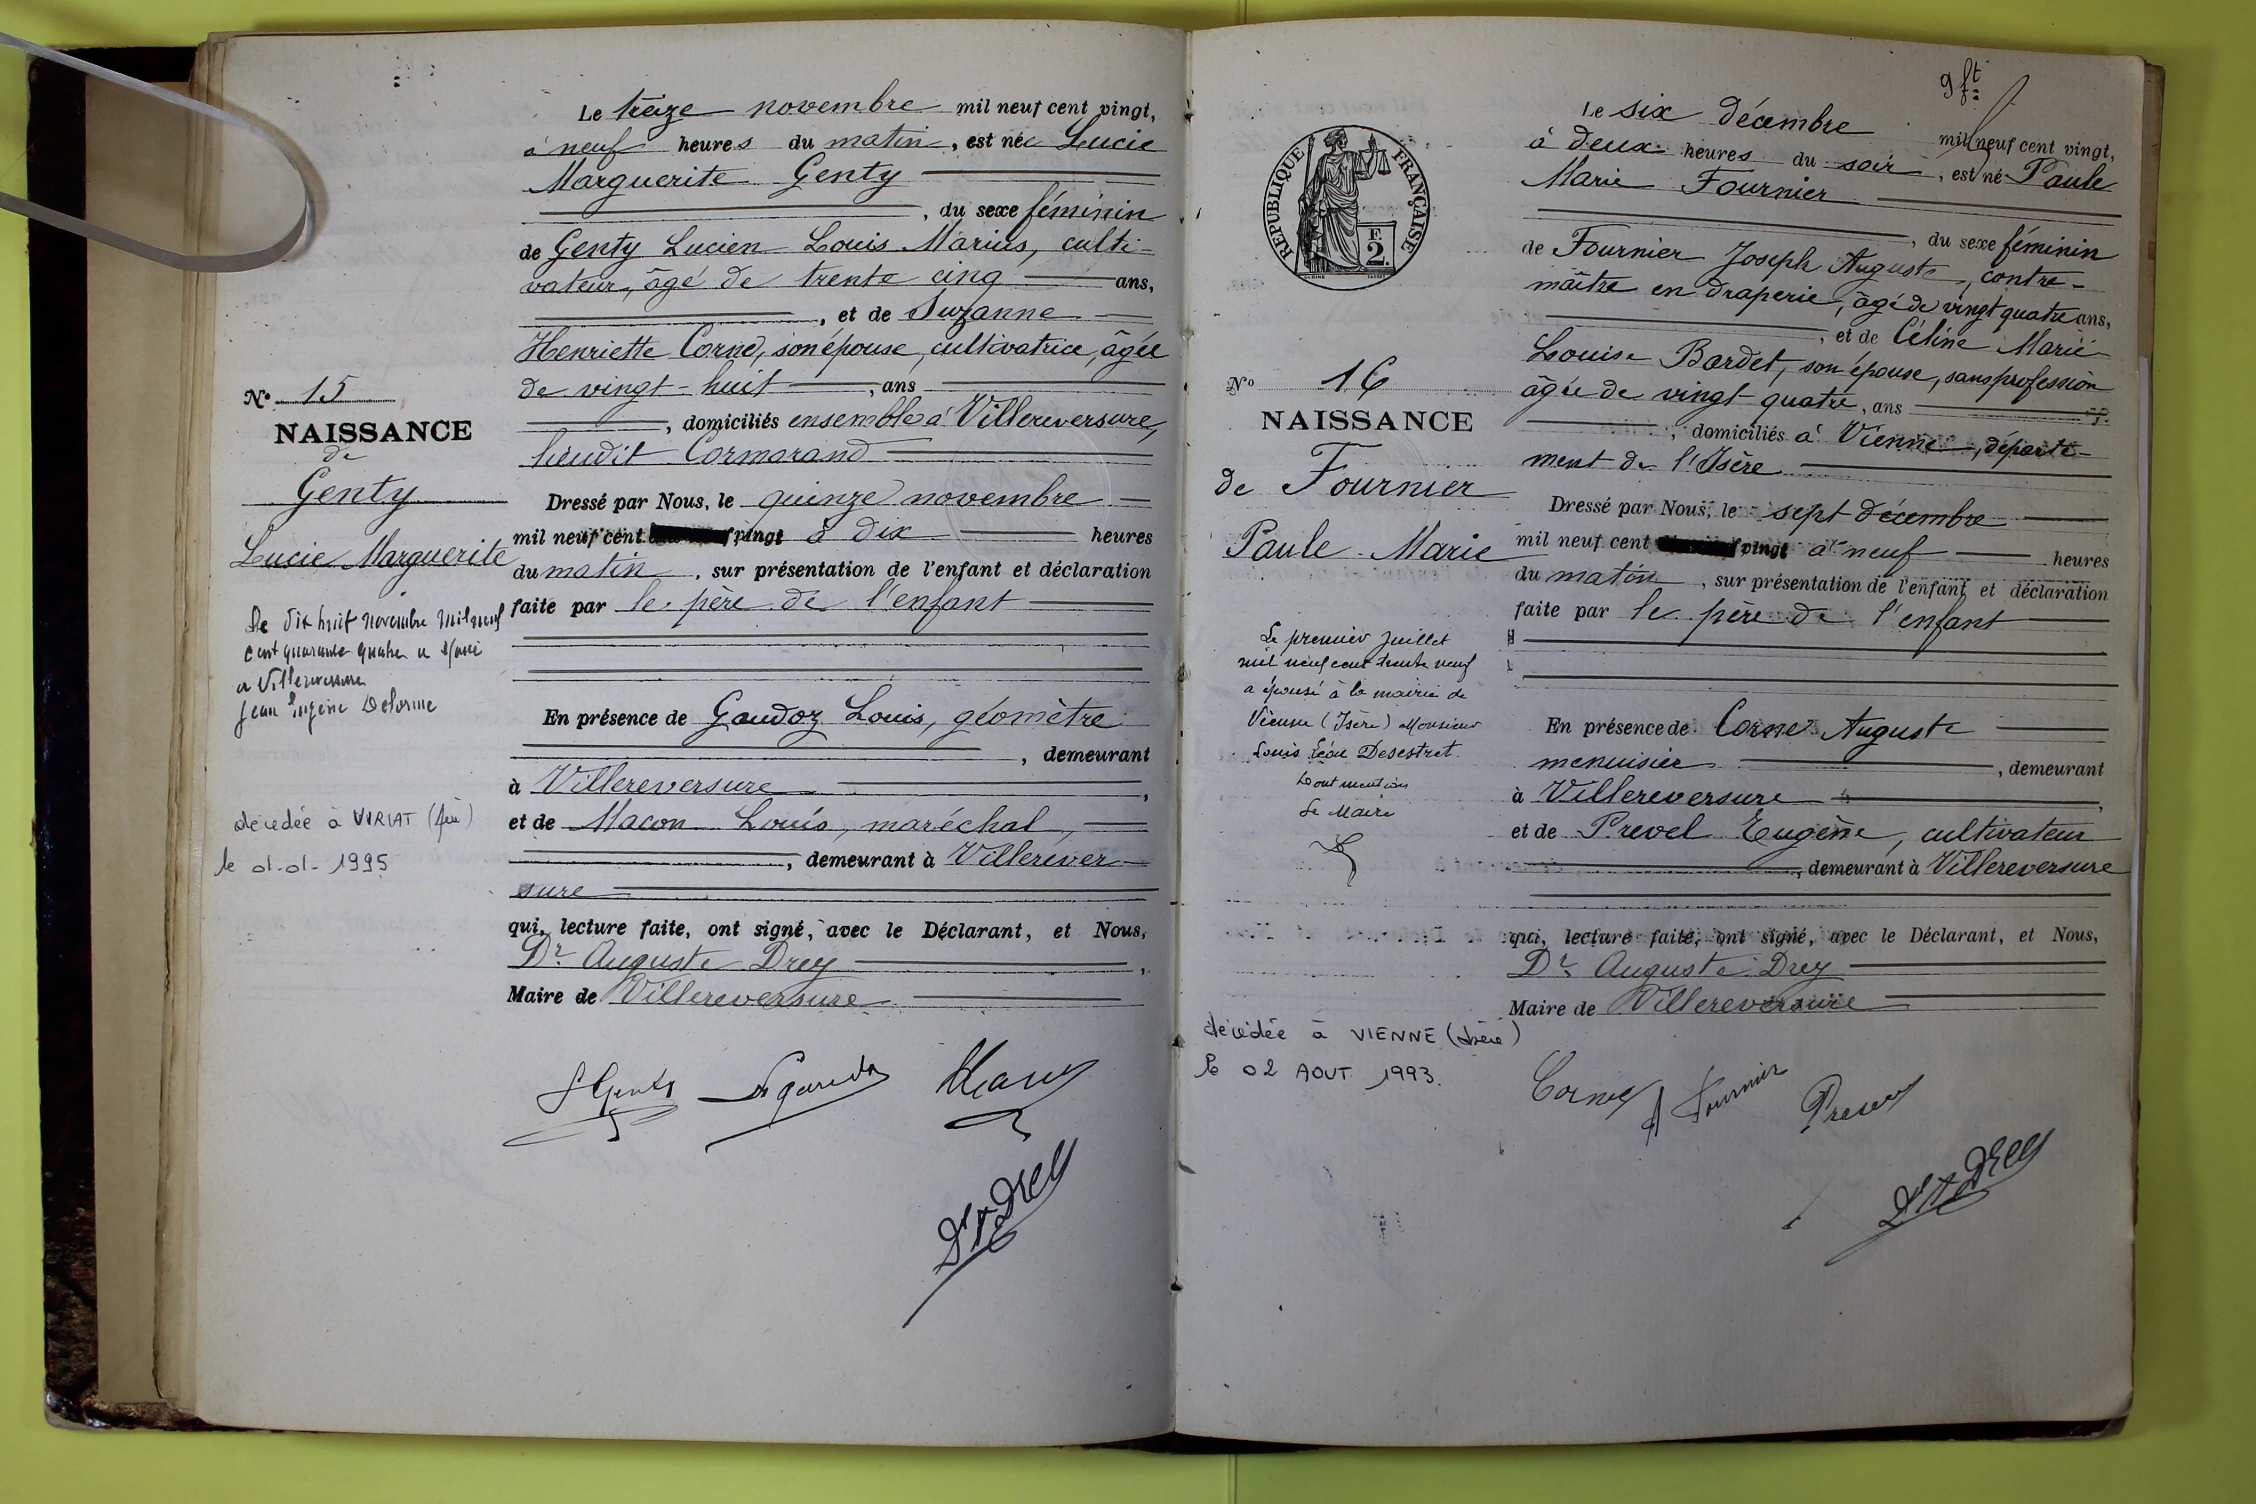 Le treize novembre mil neuf cent vingt,
à neuf heures du matin, est née Lucie
Marguerite Genty
, du sexe féminin
de Genty Lucien Louis Marius, culti-
vateur, âgé de trente cinq ans,
, et de Suzanne
Henriette Corne, son épouse, cultivatrice, âgée
de vingt-huit, ans
, domiciliés ensemble à Villereversure,
lieudit Cormorand
Dressé par Nous, le quinze novembre
mil neuf cent vingt à dix heures
du matin, sur présentation de l'enfant et déclaration
faite par le père de l'enfant
En présence de Gaudoz Louis, géomètre
, demeurant
à Villereversure,
et de Macon Louis, maréchal,
, demeurant à Villerever-
sure
qui, lecture faite, ont signé, avec le Déclarant, et Nous,
Dr Auguste Drey,
Maire de Villereversure
No 15
NAISSANCE
de
Genty
Lucie Marguerite
Le dix huit novembre mil neuf
cent quarante quatre a épousé
à Villereversure
Jean Eugène Delorme
décédée à VIRIAT (Ain)
le 01-01-1995
9 ft
Le six décembre mil neuf cent vingt,
à deux heures du soir, est né Paule
Marie Fournier
, du sexe féminin
de Fournier Joseph Auguste, contre-
maître en draperie, âgé de vingt quatre ans,
, et de Céline Marie
Louise Bardet, son épouse, sans profession
âgée de vingt-quatre, ans
, domiciliés à Vienne, départe-
ment de l'Isère
Dressé par Nous, le sept décembre
mil neuf cent vingt à neuf heures
du matin, sur présentation de l'enfant et déclaration
faite par le père de l'enfant
En présence de Corne Auguste
menuisier, demeurant
à Villereversure,
et de Prevel Eugène, cultivateur
, demeurant à Villereversure
qui, lecture faite, ont signé, avec le Déclarant, et Nous,
Dr Auguste Drey
Maire de Villereversure
Corne A Fournier
Dr A Drey
RÉPUBLIQUE FRANÇAISE
F.
2.
No 16
NAISSANCE
de Fournier
Paule Marie
Le premier juillet
mil neuf cent trente neuf
a épousé à la mairie de
Vienne (Isère) Monsieur
Louis Léon Desestret.
Dont mention
Le Maire
décédée à VIENNE (Isère)
le 02 AOUT 1993.